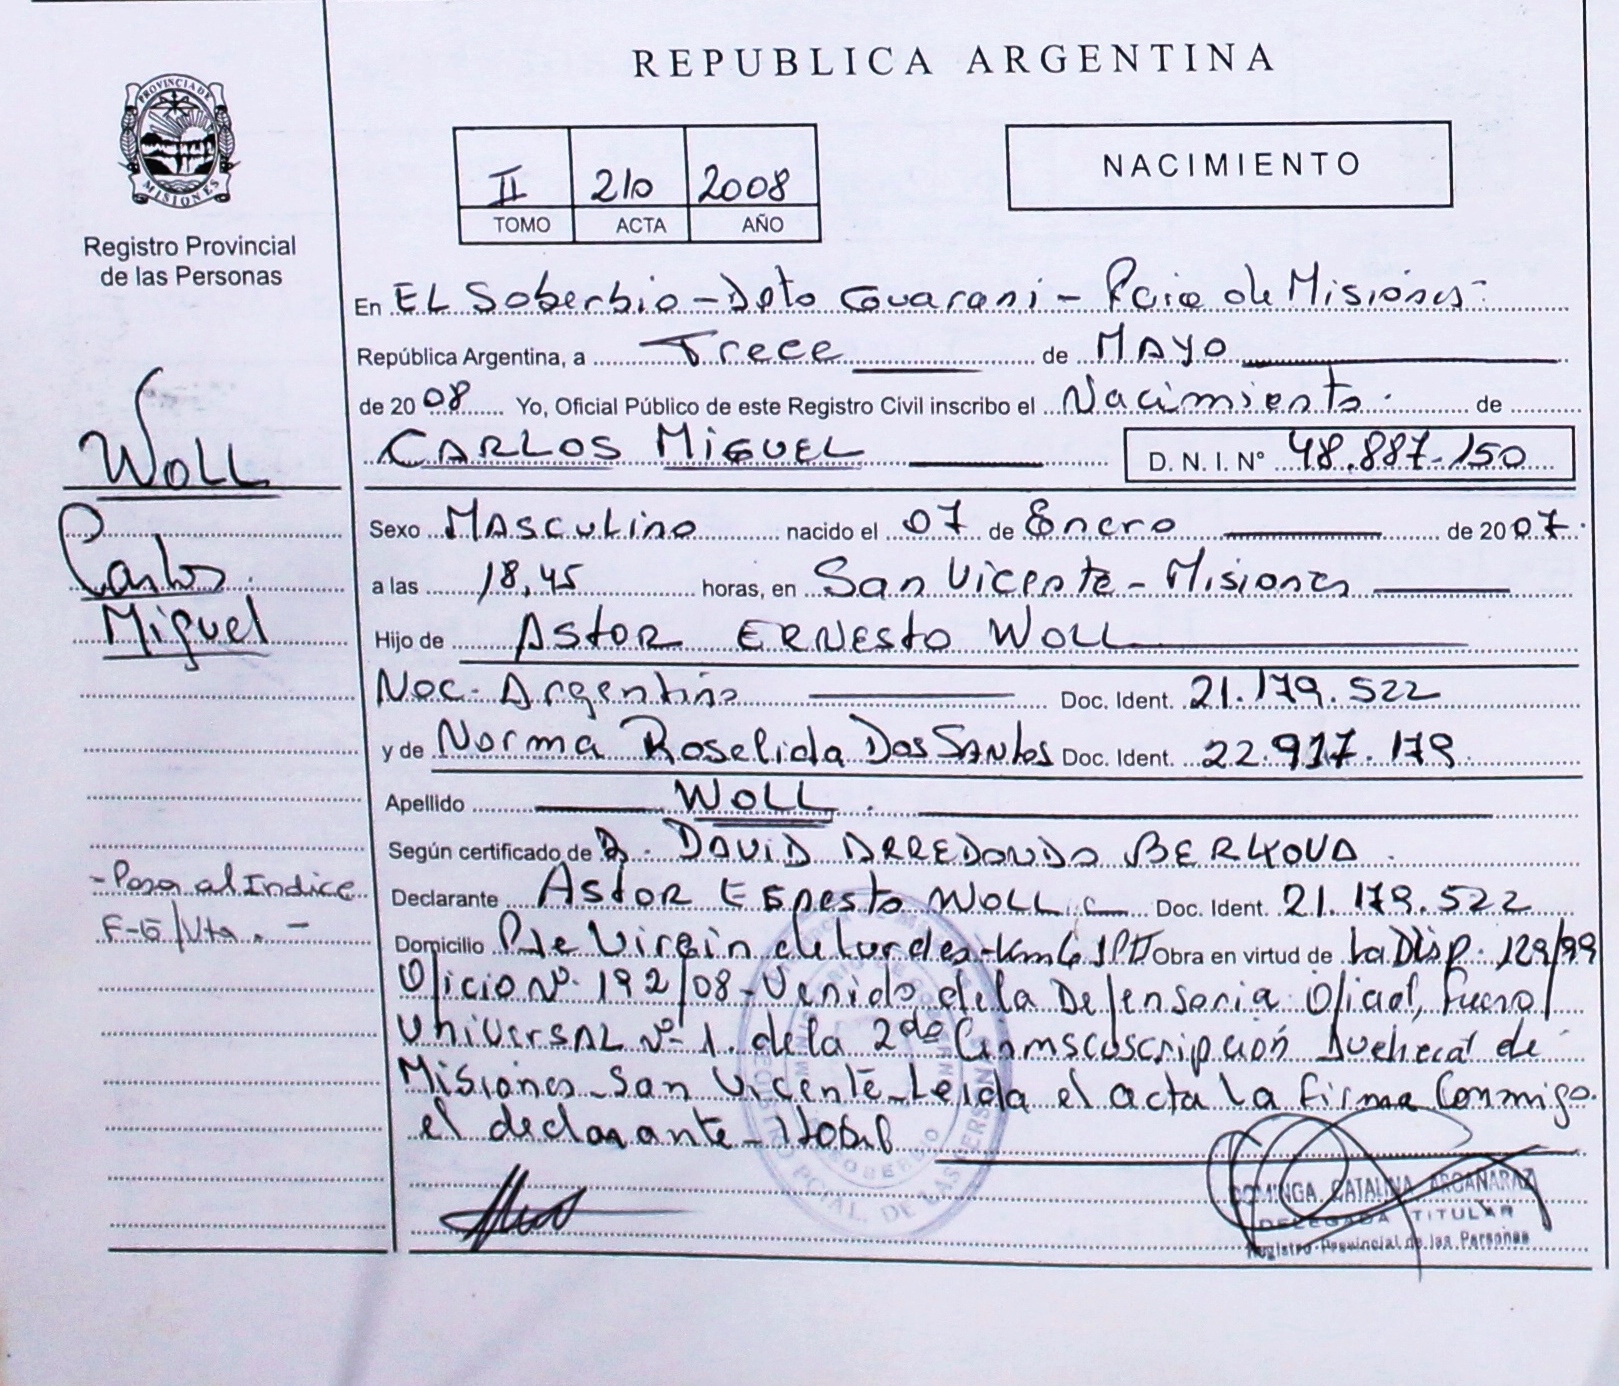 REPUBLICA ARGENTINA
PROVINCIA DE
MISIONES
Registro Provincial
de las Personas
II 210 2008
TOMO ACTA AÑO
NACIMIENTO
En EL Soberbio - Dpto Guarani - Pcia de Misiones-
República Argentina, a Trece de MAYO
de 2008 Yo, Oficial Público de este Registro Civil inscribo el Nacimiento. de
CARLOS MIGUEL D. N. I. Nº 48.887.150
WOLL
Carlos
Miguel
Sexo MASCULINO nacido el 07 de Enero de 2007.
a las 18,45 horas, en San Vicente - Misiones
Hijo de ASTOR ERNESTO WOLL
Nac. Argentina Doc. Ident. 21.179.522
y de Norma Roselida Dos SANtos Doc. Ident. 22.917.179.
Apellido WOLL.
Según certificado de D. DAVID ARREDONDO BERKOVA.
- Pasa al Indice
Declarante ASTOR ERNESTO WOLL Doc. Ident. 21.179.522
F-6/Vta. -
Domicilio Pje Virgin de Lurdes - Km 6 Obra en virtud de La Disp. 129/99
Oficio Nº 192/08 - Venido de la Defensoria Oficial, Fuero
UNIVERSAL Nº 1. de la 2da de
Misiones - San Vicente - Leida el acta La Firma Conmigo.
el declarante -
DOMINGA CATALINA ARGAÑARAZ
DELEGADA TITULAR
Registro Provincial de las Personas